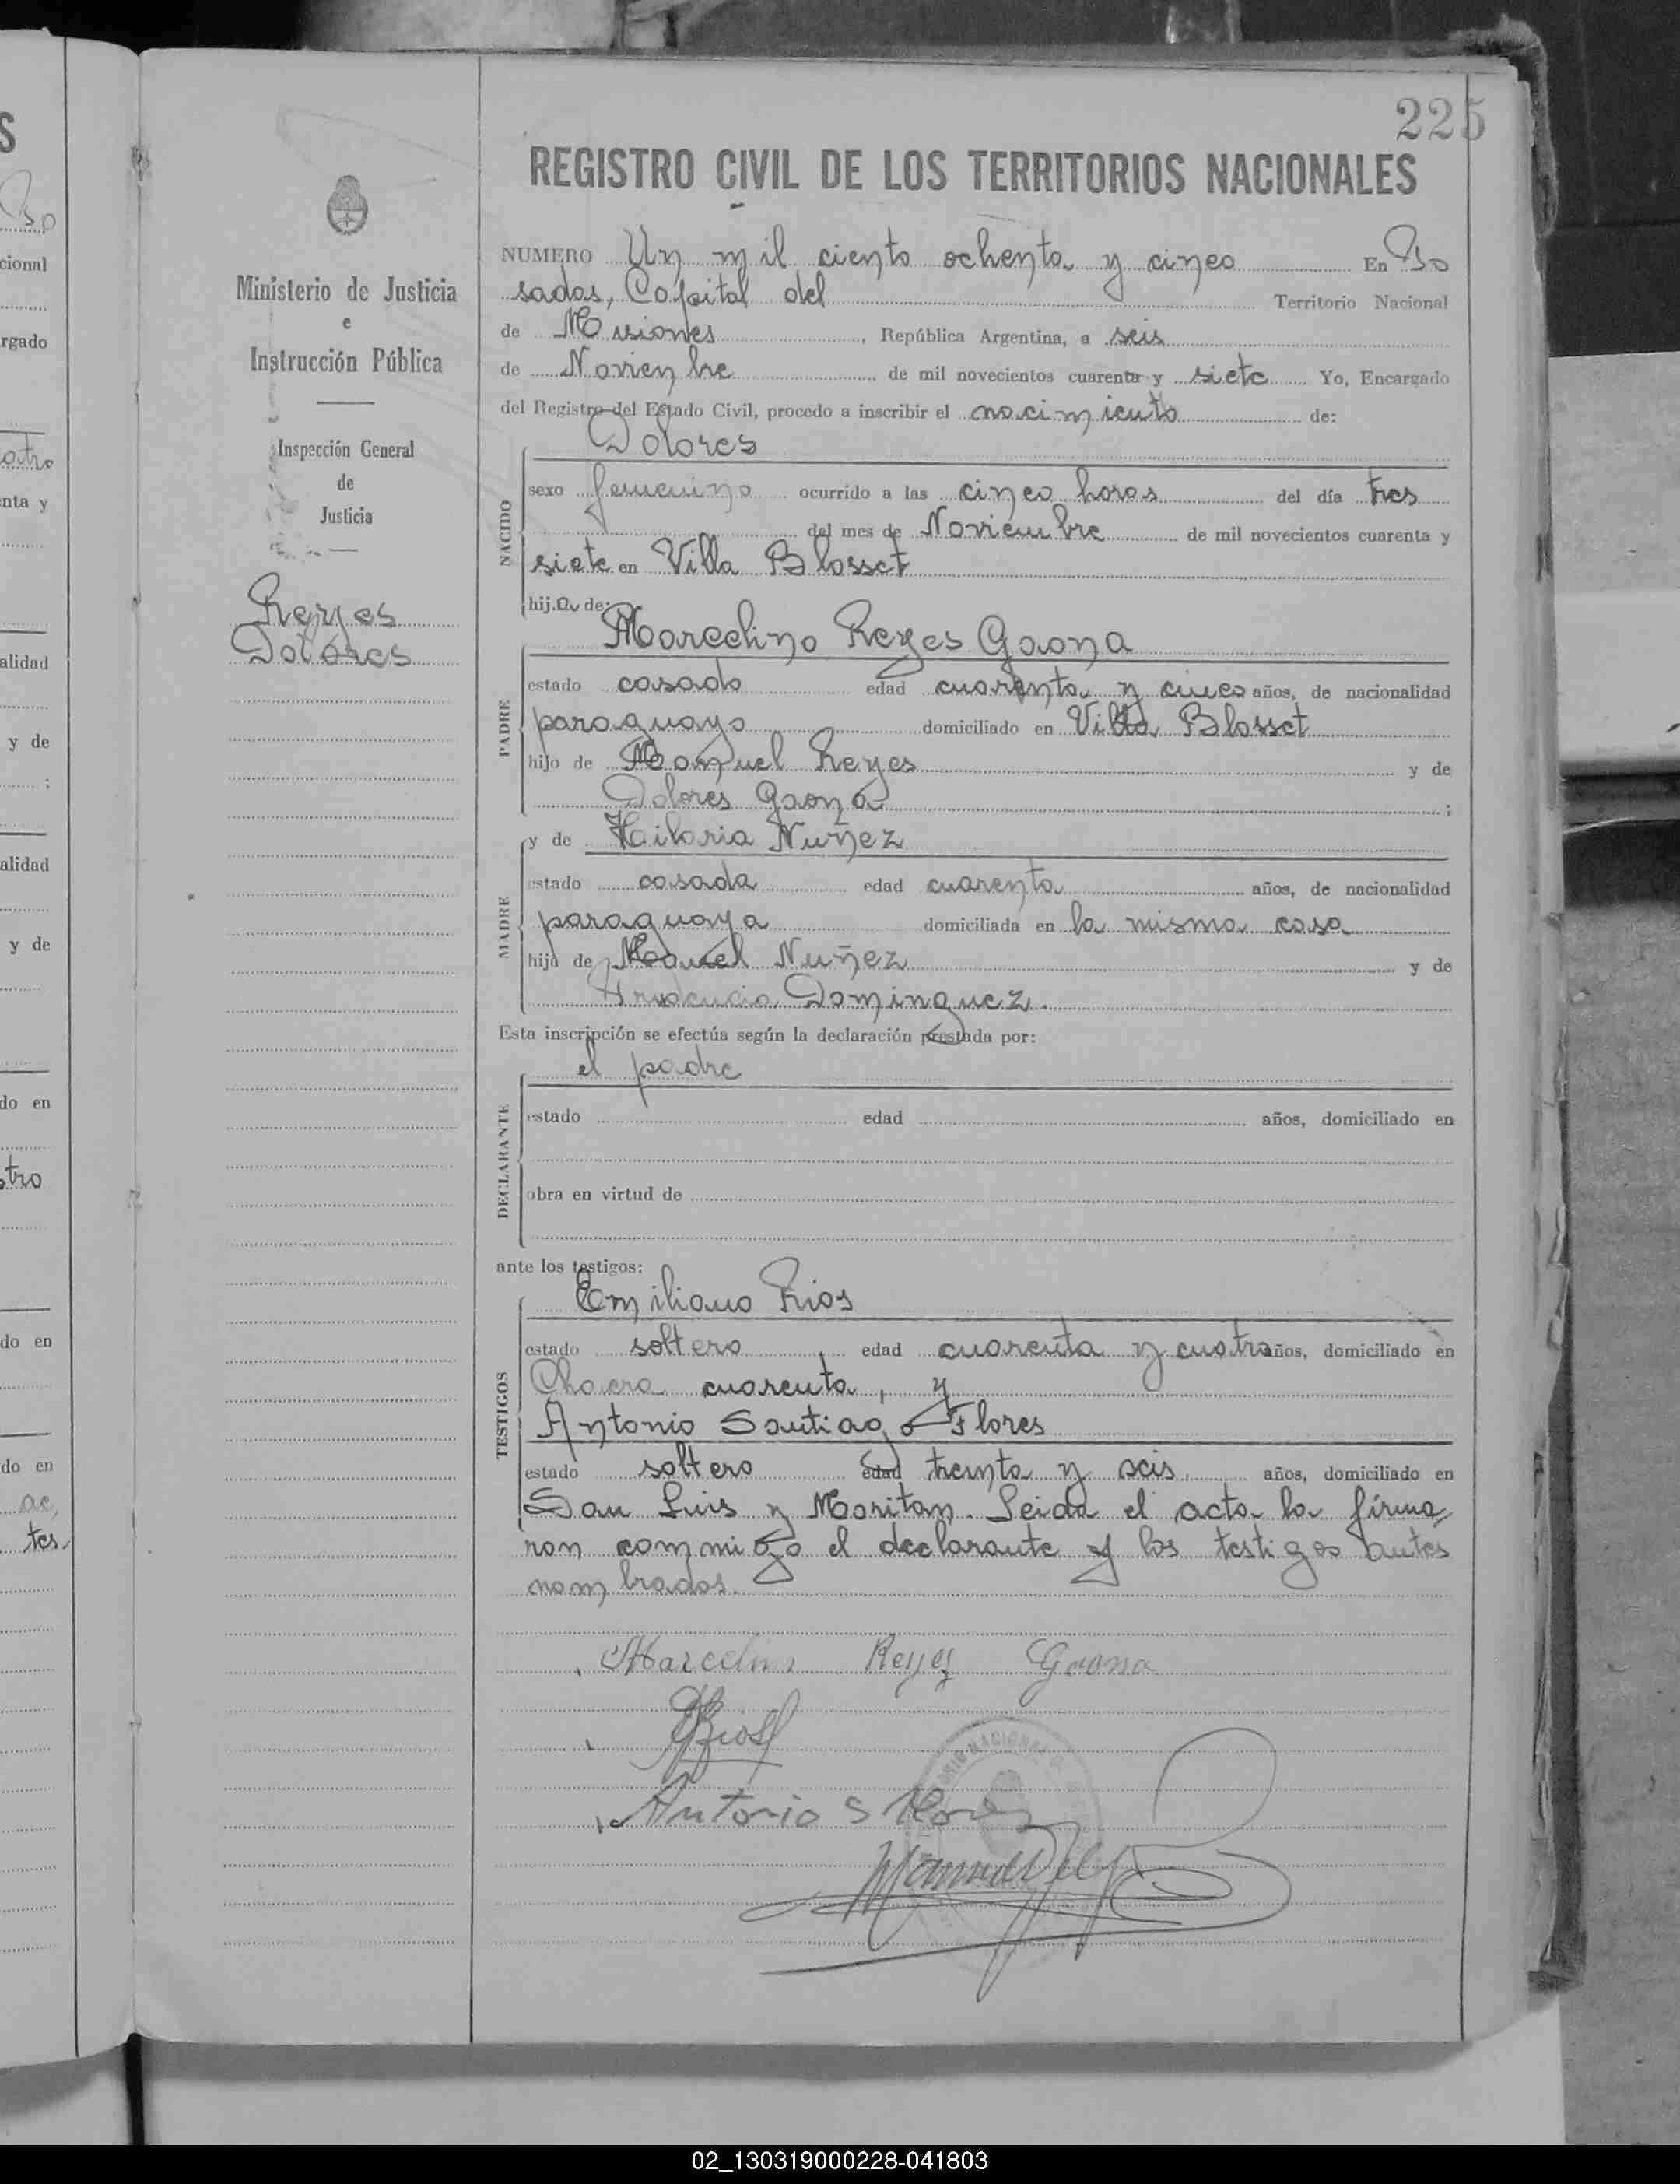 225
REGISTRO CIVIL DE LOS TERRITORIOS NACIONALES
Ministerio de Justicia
e
Instrucción Pública
Inspección General
de
Justicia
Reyes
Dolores
NUMERO Un mil ciento ochenta y cinco En Po
sadas, Capital del Territorio Nacional
de Misiones, República Argentina, a seis
de Noviembre de mil novecientos cuarenta y siete Yo, Encargado
del Registro del Estado Civil, procedo a inscribir el nacimiento de:
Dolores
NACIDO
sexo femenino ocurrido a las cinco horas del día tres
del mes de Noviembre de mil novecientos cuarenta y
siete en Villa Blosset
hij.a de:
Marcelino Reyes Gaona
PADRE
estado casado edad cuarenta y cinco años, de nacionalidad
paraguayo domiciliado en Villa Blosset
hijo de Manuel Reyes y de
Dolores Gaona ;
y de Hilaria Nuñez
MADRE
estado casada edad cuarenta años, de nacionalidad
paraguaya domiciliada en la misma casa
hija de Manuel Nuñez y de
Prudencia Dominguez.
Esta inscripción se efectúa según la declaración prestada por:
el padre
DECLARANTE
estado edad años, domiciliado en
obra en virtud de
ante los testigos:
Emiliano Rios
TESTIGOS
estado soltero edad cuarenta y cuatro años, domiciliado en
Chacra cuarenta, y
Antonio Santiago Flores
estado soltero edad treinta y seis años, domiciliado en
San Luis y Moritan. Leida el acta la firma
ron conmigo el declarante y los testigos antes
nombrados.
Marcelino Reyes Gaona
ERios
Antonio S Flores
02_130319000228-041803